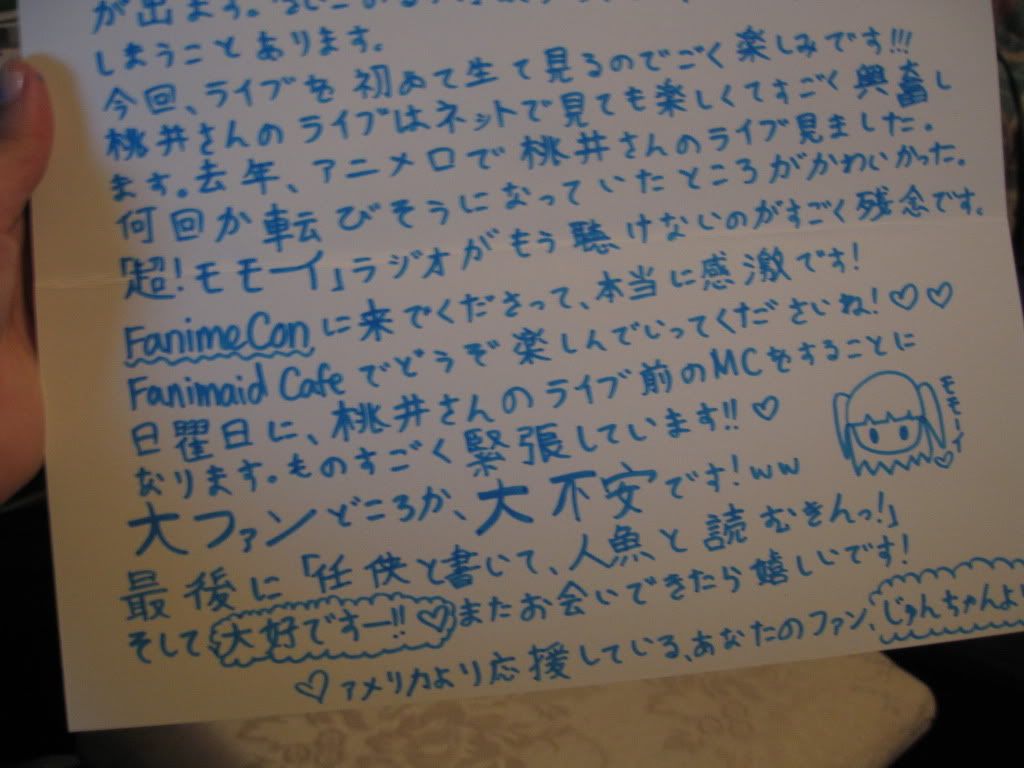 が出ます。
しまうことあります。
今回、ライブを初めて生で見るのでごく楽しみです!!!
桃井さんのライブはネットで見ても楽しくてすごく興奮し
ます。去年、アニメロで桃井さんのライブ見ました。
何回か転びそうになっていたところがかわいかった。
「超!モモーイ」ラジオがもう聴けないのがすごく残念です。
FanimeConに来てくださって、本当に感激です!
Fanimaid Cafeでどうぞ楽しんでいってくださいね!♡♡
日曜日に、桃井さんのライブ前のMCをすることに
なります。ものすごく緊張しています!!♡
モモーイ
大ファンどころか、大不安です!ww
最後に「任侠と書いて、人魚と読むきんっ!」
そして大好きですー!!♡またお会いできたら嬉しいです!
♡アメリカより応援している、あなたのファン、じゅんちゃんより